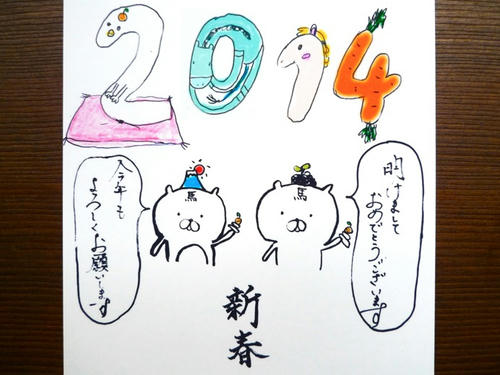 2014
明けまして
おめでとうございます
馬
馬
今年も
よろしくお願いします
新春